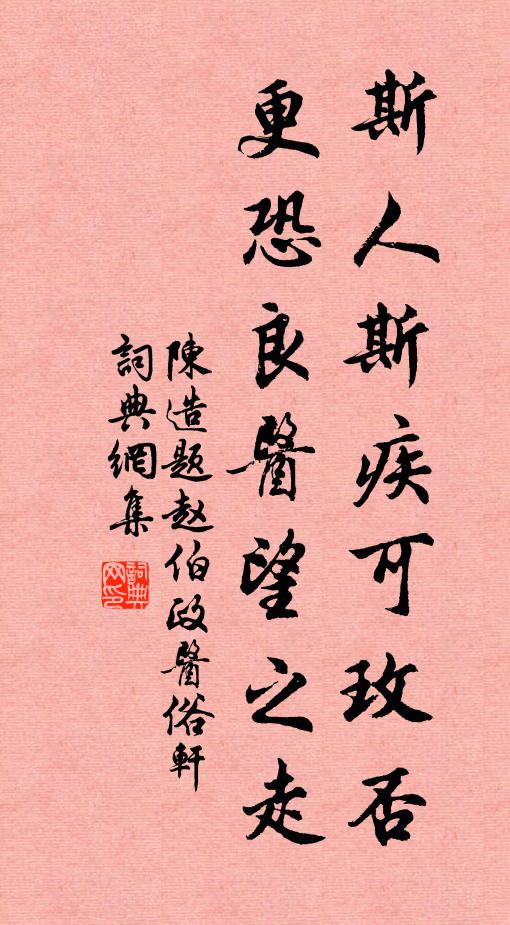 斯人斯疾可攻否
更恐良醫望之走
陳造題赵伯政醫俗軒
詞典網集
詞典网印